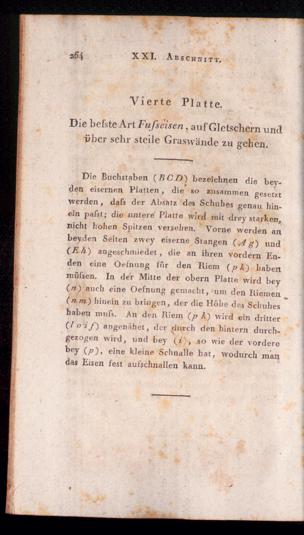 264 XXI. Abschnitt.
Vierte Platte.
Die beſste Art Fuſseisen, auf Gletschern und
über sehr steile Graswände zu gehen.
Die Buchstaben (BCD) bezeichnen die bey-
den eisernen Platten, die so zusammen gesetzt
werden, daſs der Absatz des Schuhes genau hin-
ein paſst; die untere Platte wird mit drey starken,
nicht hohen Spitzen versehen. Vorne werden an
beyden Seiten zwey eiserne Stangen (Ag) und
(Eh) angeschmiedet, die an ihren vordern En-
den eine Oefnung für den Riem (pk) haben
müſsen. In der Mitte der obern Platte wird bey
(n) auch eine Oefnung gemacht, um den Riemen
(nm) hinein zu bringen, der die Höhe des Schuhes
haben muſs. An den Riem (pk) wird ein dritter
(loif) angenähet, der durch den hintern durch-
gezogen wird, und bey (i), so wie der vordere
bey (p), eine kleine Schnalle hat, wodurch man
das Eisen fest aufschnallen kann.